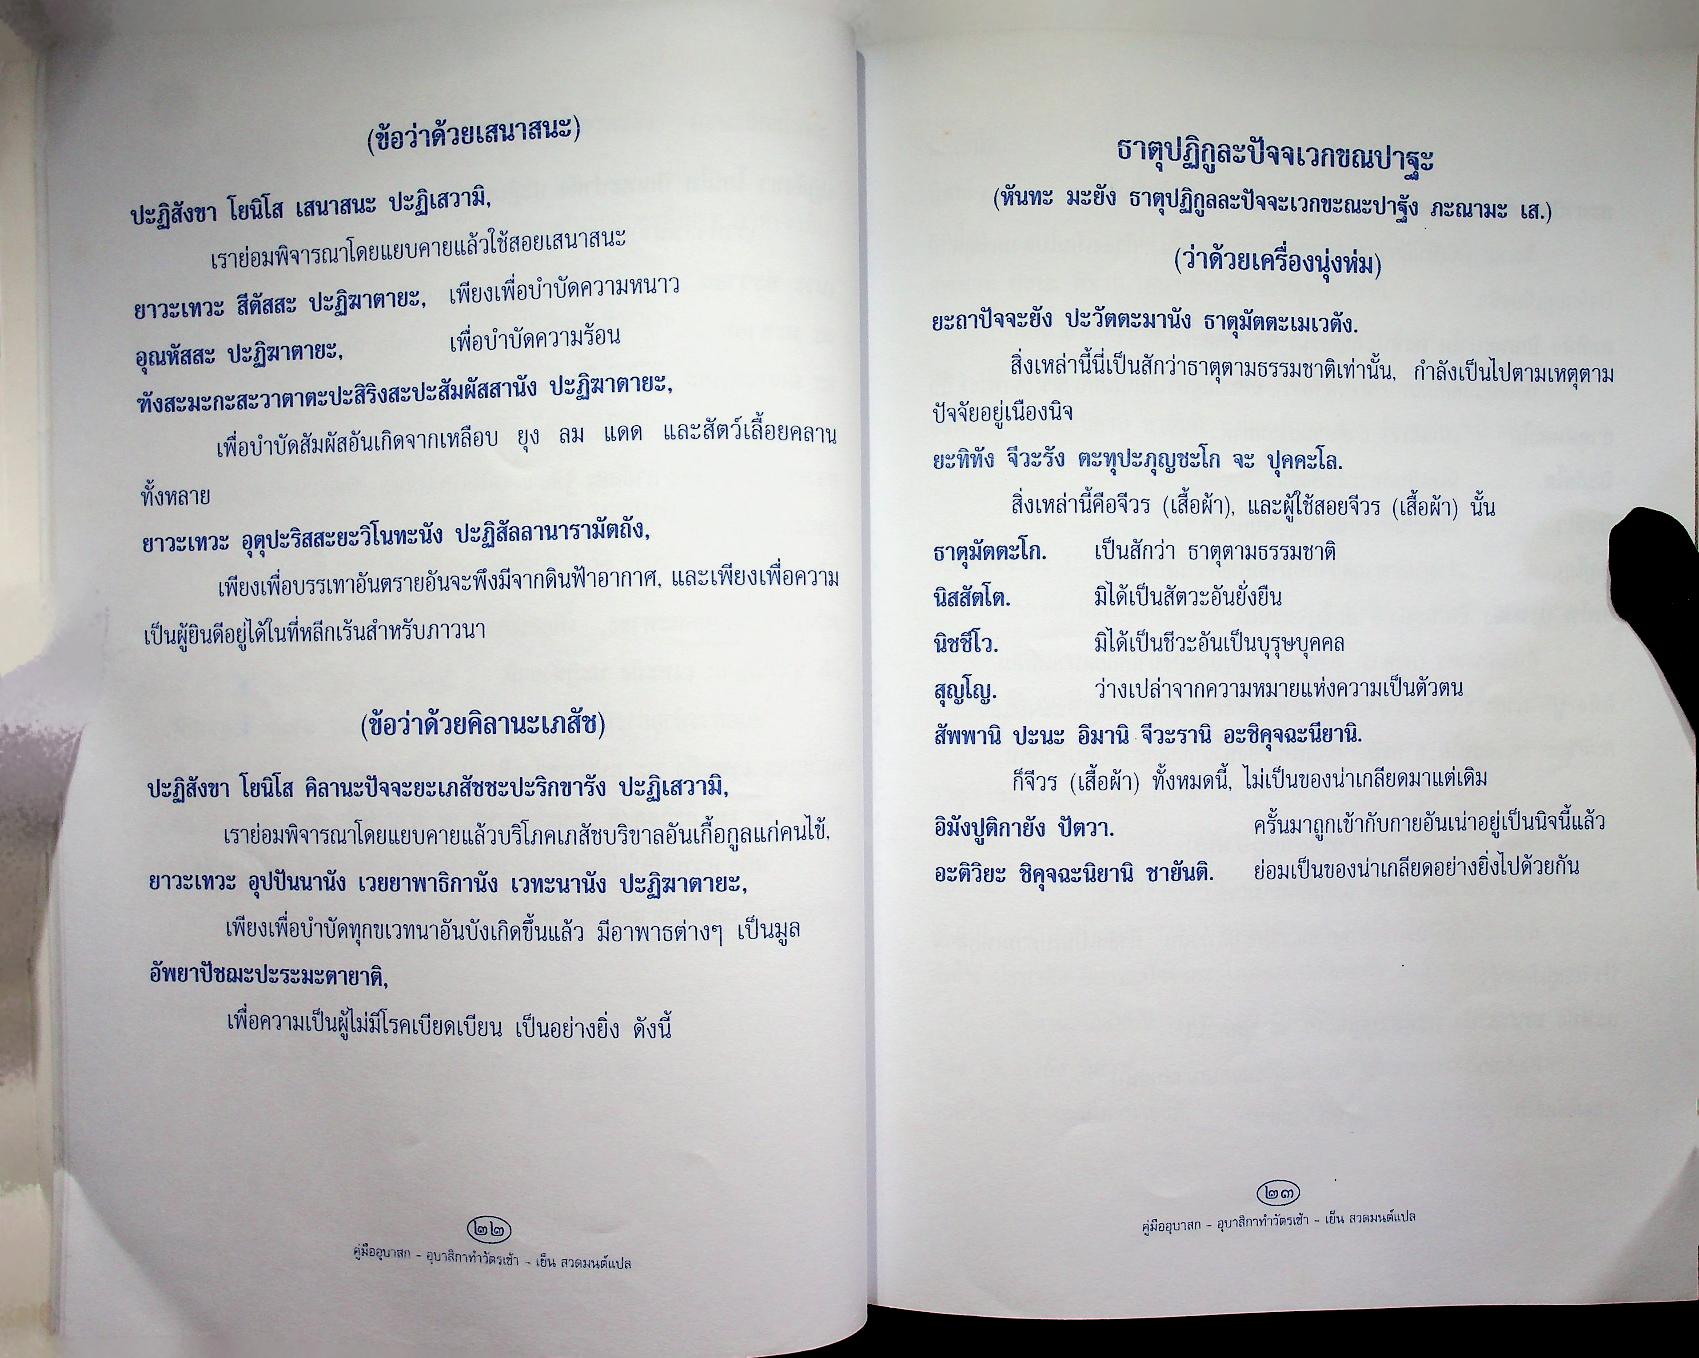 (ข้อว่าด้วยเสนาสนะ)
ปะฏิสังขา โยนิโส เสนาสนะ ปะฏิเสวามิ,
เราย่อมพิจารณาโดยแยบคายแล้วใช้สอยเสนาสนะ
ยาวะเทวะ สีตัสสะ ปะฏิฆาตายะ, เพียงเพื่อบำบัดความหนาว
อุณหัสสะ ปะฏิฆาตายะ, เพื่อบำบัดความร้อน
ฑังสะมะกะสะวาตาตะปะสิริงสะปะสัมผัสสานัง ปะฏิฆาตายะ,
เพื่อบำบัดสัมผัสอันเกิดจากเหลือบ ยุง ลม แดด และสัตว์เลื้อยคลาน
ทั้งหลาย
ยาวะเทวะ อุตุปะริสสะยะวิโนทะนัง ปะฏิสัลลานารามัตถัง,
เพียงเพื่อบรรเทาอันตรายอันจะพึงมีจากดินฟ้าอากาศ, และเพียงเพื่อความ
เป็นผู้ยินดีอยู่ได้ในที่หลีกเร้นสำหรับภาวนา
(ข้อว่าด้วยคิลานะเภสัช)
ปะฏิสังขา โยนิโส คิลานะปัจจะยะเภสัชชะปะริกขารัง ปะฏิเสวามิ,
เราย่อมพิจารณาโดยแยบคายแล้วบริโภคเภสัชบริขาลอันเกื้อกูลแก่คนไข้,
ยาวะเทวะ อุปปันนานัง เวยยาพาธิกานัง เวทะนานัง ปะฏิฆาตายะ,
เพียงเพื่อบำบัดทุกขเวทนาอันบังเกิดขึ้นแล้ว มีอาพาธต่างๆ เป็นมูล
อัพยาปัชฌะปะระมะตายาติ,
เพื่อความเป็นผู้ไม่มีโรคเบียดเบียน เป็นอย่างยิ่ง ดังนี้
๒๒
คู่มืออุบาสก - อุบาสิกาทำวัตรเช้า - เย็น สวดมนต์แปล
ธาตุปฏิกูละปัจจเวกขณปาฐะ
(หันทะ มะยัง ธาตุปฏิกูลละปัจจะเวกขะณะปาฐัง ภะณามะ เส.)
(ว่าด้วยเครื่องนุ่งห่ม)
ยะถาปัจจะยัง ปะวัตตะมานัง ธาตุมัตตะเมเวตัง.
สิ่งเหล่านี้นี่เป็นสักว่าธาตุตามธรรมชาติเท่านั้น, กำลังเป็นไปตามเหตุตาม
ปัจจัยอยู่เนืองนิจ
ยะทิทัง จีวะรัง ตะทุปะภุญชะโก จะ ปุคคะโล.
สิ่งเหล่านี้คือจีวร (เสื้อผ้า), และผู้ใช้สอยจีวร (เสื้อผ้า) นั้น
ธาตุมัตตะโก. เป็นสักว่า ธาตุตามธรรมชาติ
นิสสัตโต. มิได้เป็นสัตวะอันยั่งยืน
นิชชีโว. มิได้เป็นชีวะอันเป็นบุรุษบุคคล
สุญโญ. ว่างเปล่าจากความหมายแห่งความเป็นตัวตน
สัพพานิ ปะนะ อิมานิ จีวะรานิ อะชิคุจฉะนียานิ.
ก็จีวร (เสื้อผ้า) ทั้งหมดนี้, ไม่เป็นของน่าเกลียดมาแต่เดิม
อิมังปูติกายัง ปัตวา. ครั้นมาถูกเข้ากับกายอันเน่าอยู่เป็นนิจนี้แล้ว
อะติวิยะ ชิคุจฉะนิยานิ ชายันติ. ย่อมเป็นของน่าเกลียดอย่างยิ่งไปด้วยกัน
๒๓
คู่มืออุบาสก - อุบาสิกาทำวัตรเช้า - เย็น สวดมนต์แปล